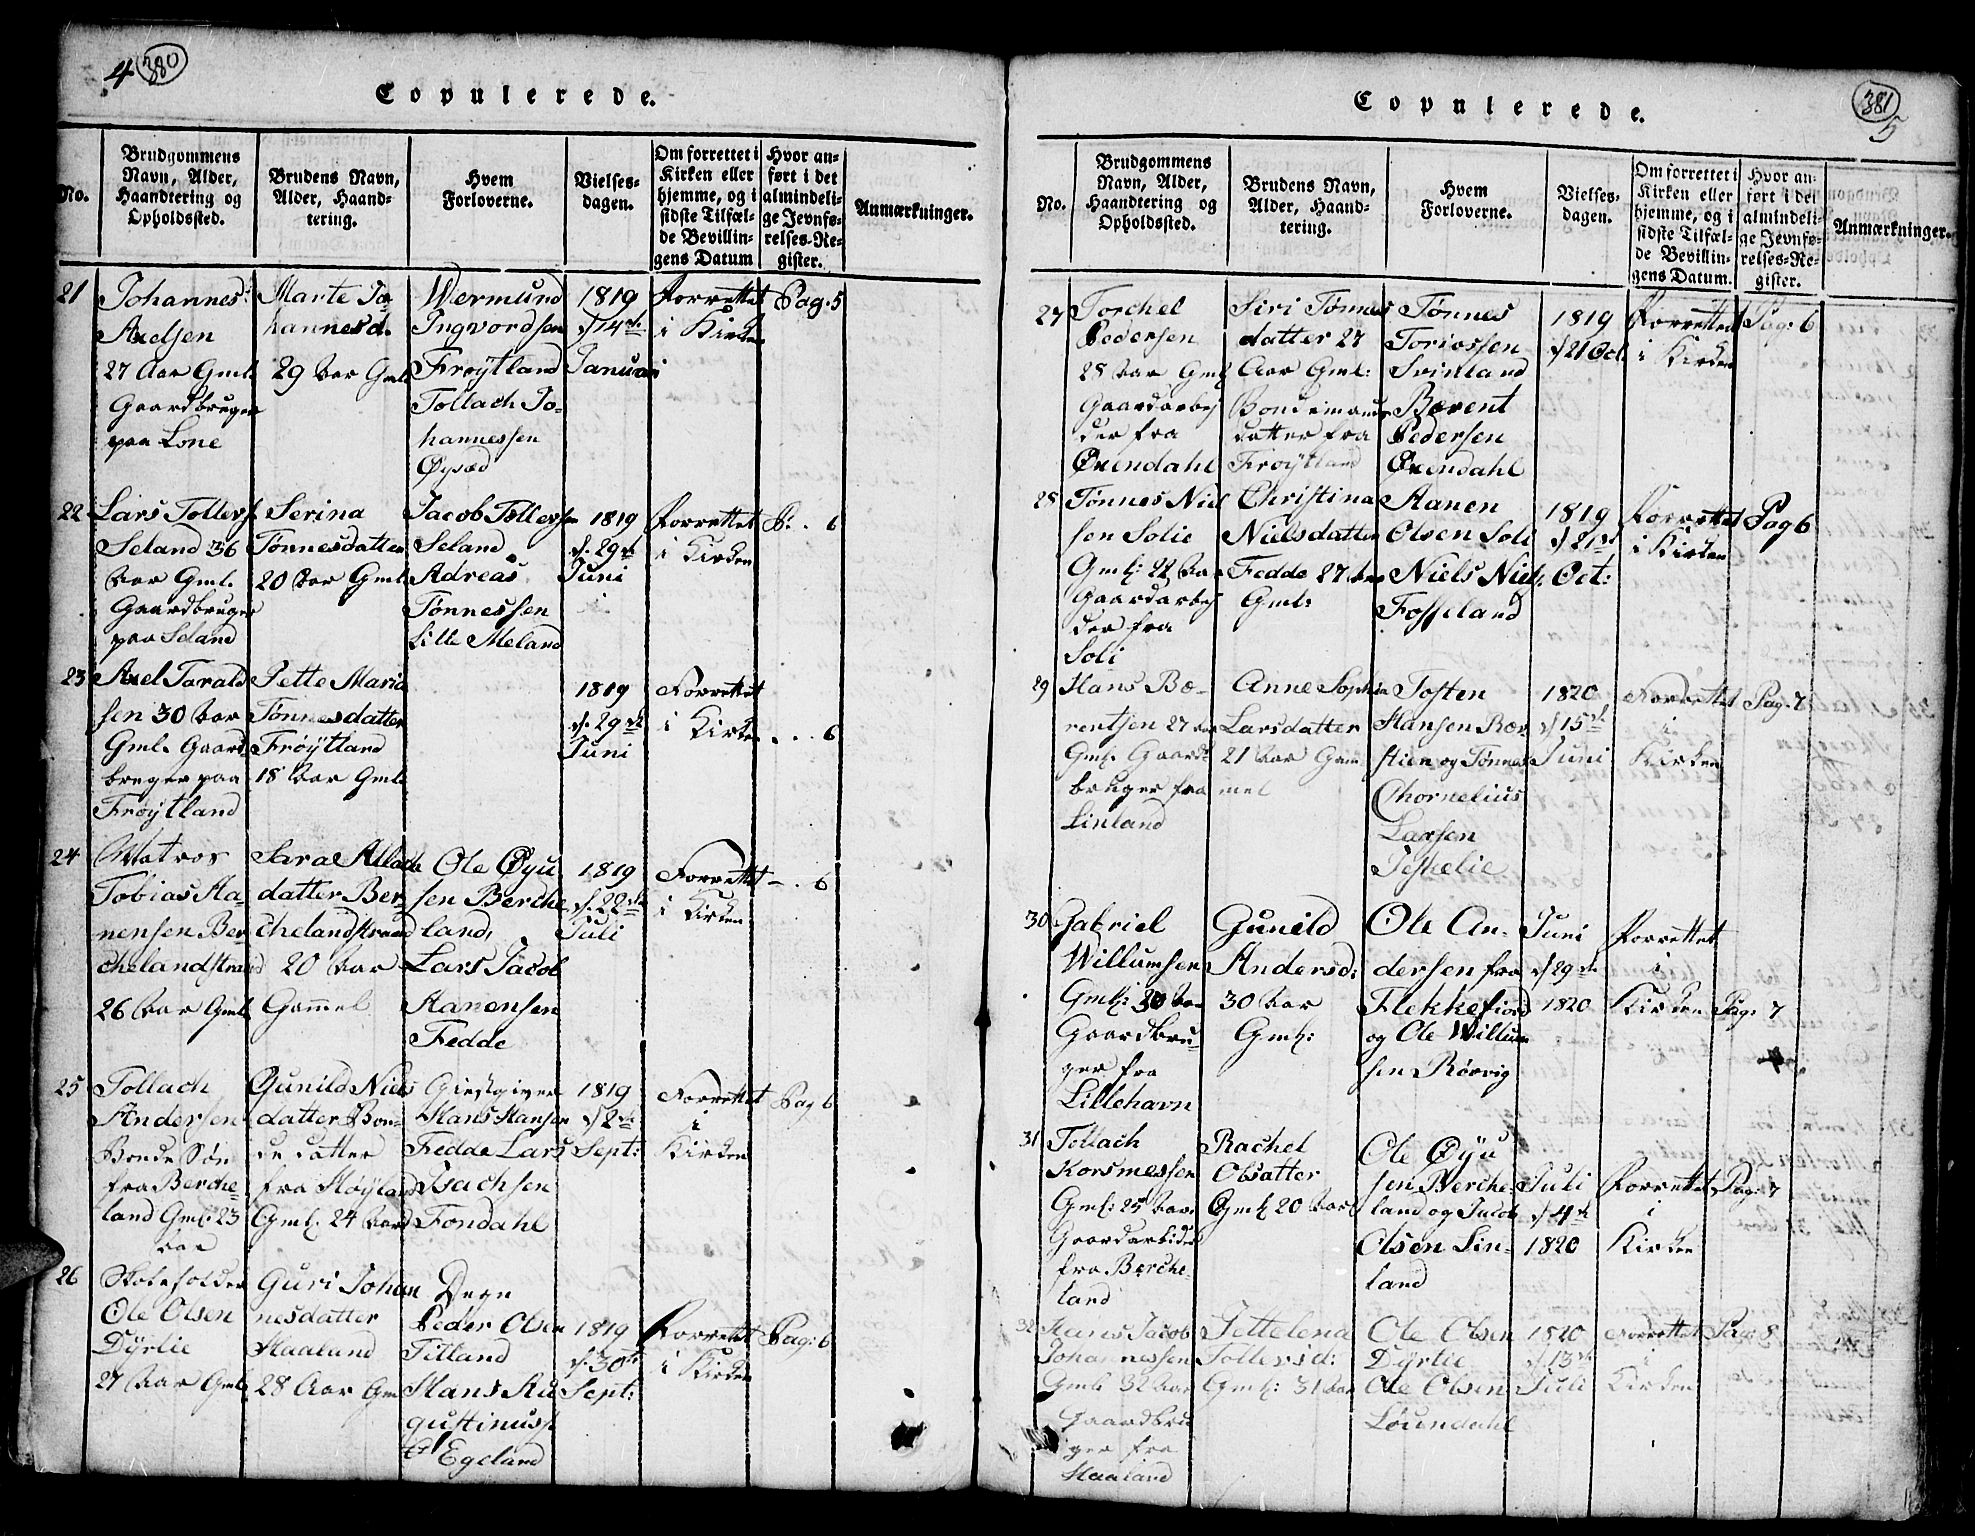 4 380
Copulerede.
No.
Brudgommens Navn, Alder, Haandtering og Opholdssted.
Brudens Navn, Alder, Haandtering.
Hvem Forloverne.
Vielsesdagen.
Om forrettet i Kirken eller hjemme, og i sidste Tilfælde Bevillingens Datum
Hvor anført i det almindelige Jevnførelses-Register.
Anmærkninger.
21
Johannes
Axelsen
27 Aar Gml.
Gaardbruger
paa Lone
Marte Jo
hannesd.
29 Aar Gml.
Wermund
Ingvordsen
Frøÿtland
Tollach Jo-
hannessen
Øysæd
1819
d. 14de
Januari
Forrettet
i Kirken
Pag: 5
22
Lars Tollers.
Seland 36
Aar Gml.
Gaardbruger
paa Seland
Serina
Tønnesdatter
20 Aar Gml.
Jacob Tollersen
Seland
Adreas
Tønnessen
Lille Meland
1819
d. 29de
Juni
Forrettet
i Kirken
P. . 6
23
Axel Tarald
sen 30 Aar
Gml. Gaard
bruger paa
Frøÿtland
Jette Maria
Tønnesdatter
Frøÿtland
18 Aar Gml.
1819
d. 29de
Juni
Forrettet
i Kirken
. . . 6
24
Matros
Tobias Aa-
nensen Ber-
chelandstrand
26 Aar Gml.
Sara Allach
datter Ber-
chelandstrand
20 Aar
Gammel
Ole Øyu
sen Berche
land,
Lars Jacob
Aanensen
Fedde
1819
d. 22de
Juli
Forrettet
i Kirken
- . 6
25
Tollach
Andersen
Bonde Søn
fra Berche-
land Gml: 23
Aar
Gunild Niels
datter Bon-
de datter
fra Høyland
Gml. 24 Aar
Giestgiver
Hans Hansen
Fedde Lars
Isachsen
Fondahl
1819
d 2de
Sept:
Forrettet
i
Kirken
Pag 6
26
Skoleholder
Ole Olsen
Dÿrlie
27 Aar Gml.
Guri Johan
nesdatter
Haaland
28 Aar Gm
Degn
Peder Olsen
Titland
Hans Au
gustinuss.
Egeland
1819
d. 30te
Sept:
Forrettet
i Kirken
Pag: 6
381
5
Copulerede.
No.
Brudgommens Navn, Alder, Haandtering og Opholdssted.
Brudens Navn, Alder, Haandtering.
Hvem Forloverne.
Vielsesdagen.
Om forrettet i Kirken eller hjemme, og i sidste Tilfælde Bevillingens Datum.
Hvor anført i det almindelige Jevnførelses-Register.
Anmærkninger.
27
Torchel
Pedersen
28 Aar Gml.
Gaardarbej
der fra
Øxendahl
Siri Tønnes
datter 27
Aar Gml:
Bondemands
datter fra
Frøÿtland
Tønnes
Toriassen
Svinland
Bærent
Pedersen
Øxendahl
1819
d 21 Oct.
Forrettet
i Kirken
Pag: 6
28
Tønnes Niel
sen Solie
Gml: 22 Aar
Gaardarbej
der fra
Soli
Christina
Nielsdatter
Fedde 27 Aar
Gml:
Aanen
Olsen Soli
Niels Niels.
Fosseland
1819
d 21de
Oct:
Forrettet
i Kirken
Pag 6
29
Hans Bæ-
rentsen 27 Aar
Gml. Gaard
bruger fra
Linland
Anne Sophia
Larsdatter
21 Aar Gam
mel
Tosten
Hansen Bær
stien og Tønnes
Chornelius
Larsen
1820
d 15de
Juni
Forrettet
i
Kirken
Pag: 7
30
Gabriel
Willumsen
Gml: 30 Aar
Gaardbru-
ger fra
Lillehavn
Gunild
Andersd:
30 Aar
Gml:
Ole An-
dersen fra
Flekkefiord
og Ole Willum
sen Rørvig
Juni
d 29de
1820
Forrettet
i
Kirken
Pag: 7
31
Tollach
Korsmessen
Gml: 25 Aar.
Gaardarbider
fra Berche-
land
Rachel
Olsatter
Gml 20 Aar
Ole Øyu
sen Berche-
land og Jacob
Olsen Lin-
land
Juli
d 4de
1820
Forrettet
i
Kirken
Pag: 7
32
Hans Jacob
Johannessen
Gml 32 Aar
Gaardbru
ger fra
Haaland
Jettelena
Tollevsd:
Gml: 31 Aar
Ole Olsen
Dÿrlie
Ole Olsen
Løundahl
1820
d 13de
Juli
Forrettet
i
Kirken
Pag: 8